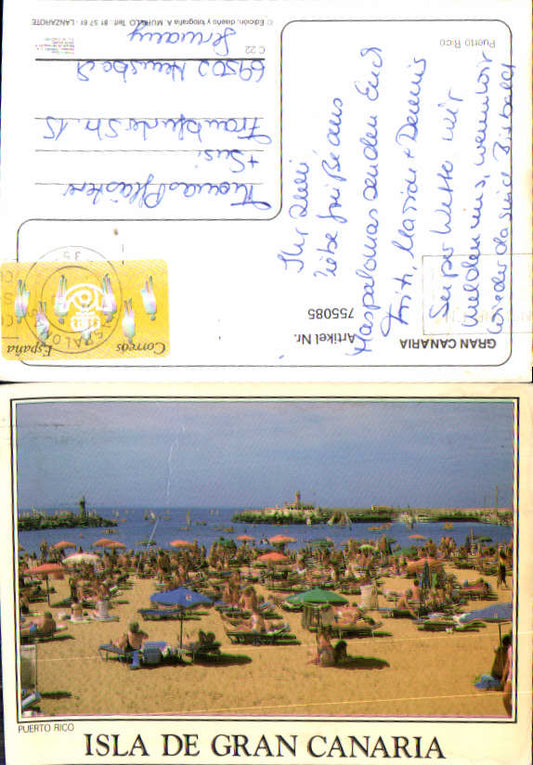 GRAN CANARIA
Puerto Rico
Artikel Nr.
755085
Ihr Zwei
liebe Grüße aus
Maspalomas senden Euch
Fritz, Marion + Dennis
Super Wetter wir
melden uns, wenn wir
wieder da sind Bis bald
Correos
España
Thomas
+ Susi
Frankfurter Str. 15
Germany
C.22
© Edición, diseño y fotografía A. MURILLO Telf. 81 57 61 - LANZAROTE
PUERTO RICO
ISLA DE GRAN CANARIA